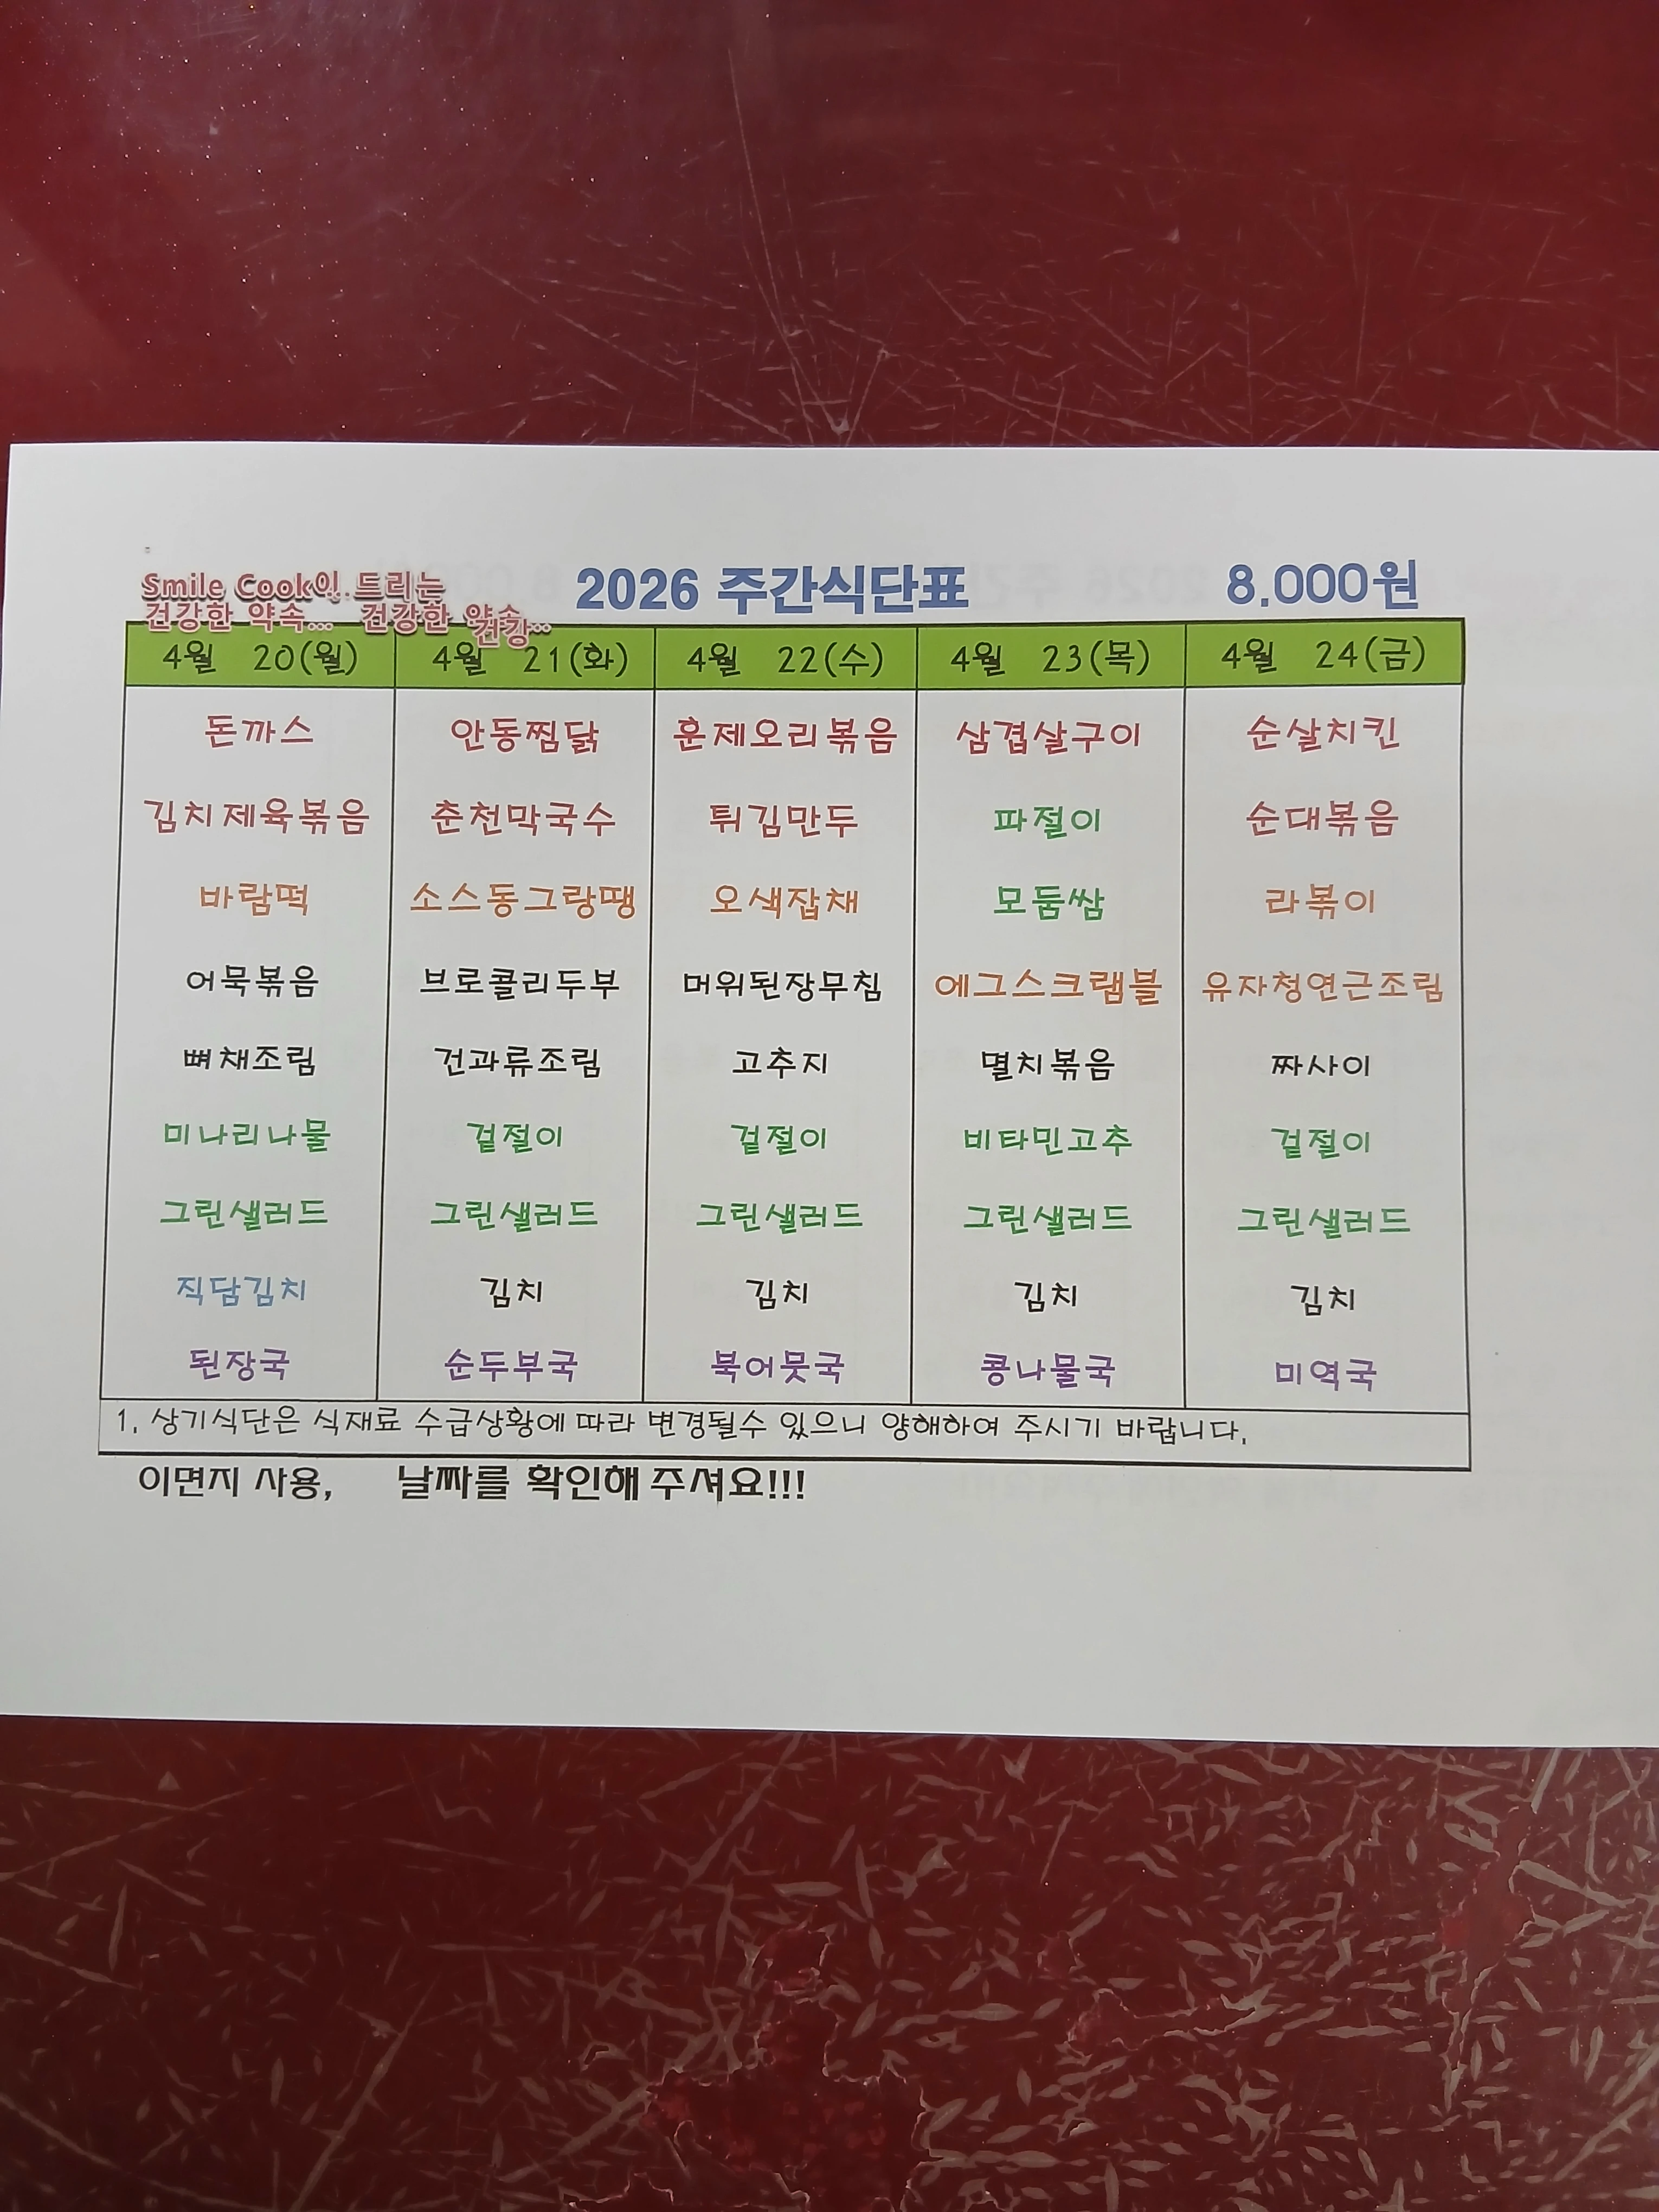 Smile Cook이 드리는
건강한 약속... 건강한 약속
건강...
2026 주간식단표 8.000원
4월 20(월) 4월 21(화) 4월 22(수) 4월 23(목) 4월 24(금)
돈까스 안동찜닭 훈제오리볶음 삼겹살구이 순살치킨
김치제육볶음 춘천막국수 튀김만두 파절이 순대볶음
바람떡 소스동그랑땡 오색잡채 모둠쌈 라볶이
어묵볶음 브로콜리두부 머위된장무침 에그스크램블 유자청연근조림
뼈채조림 건과류조림 고추지 멸치볶음 짜사이
미나리나물 겉절이 겉절이 비타민고추 겉절이
그린샐러드 그린샐러드 그린샐러드 그린샐러드 그린샐러드
직담김치 김치 김치 김치 김치
된장국 순두부국 북어뭇국 콩나물국 미역국
1. 상기식단은 식재료 수급상황에 따라 변경될수 있으니 양해하여 주시기 바랍니다.
이면지 사용, 날짜를 확인해 주셔요!!!